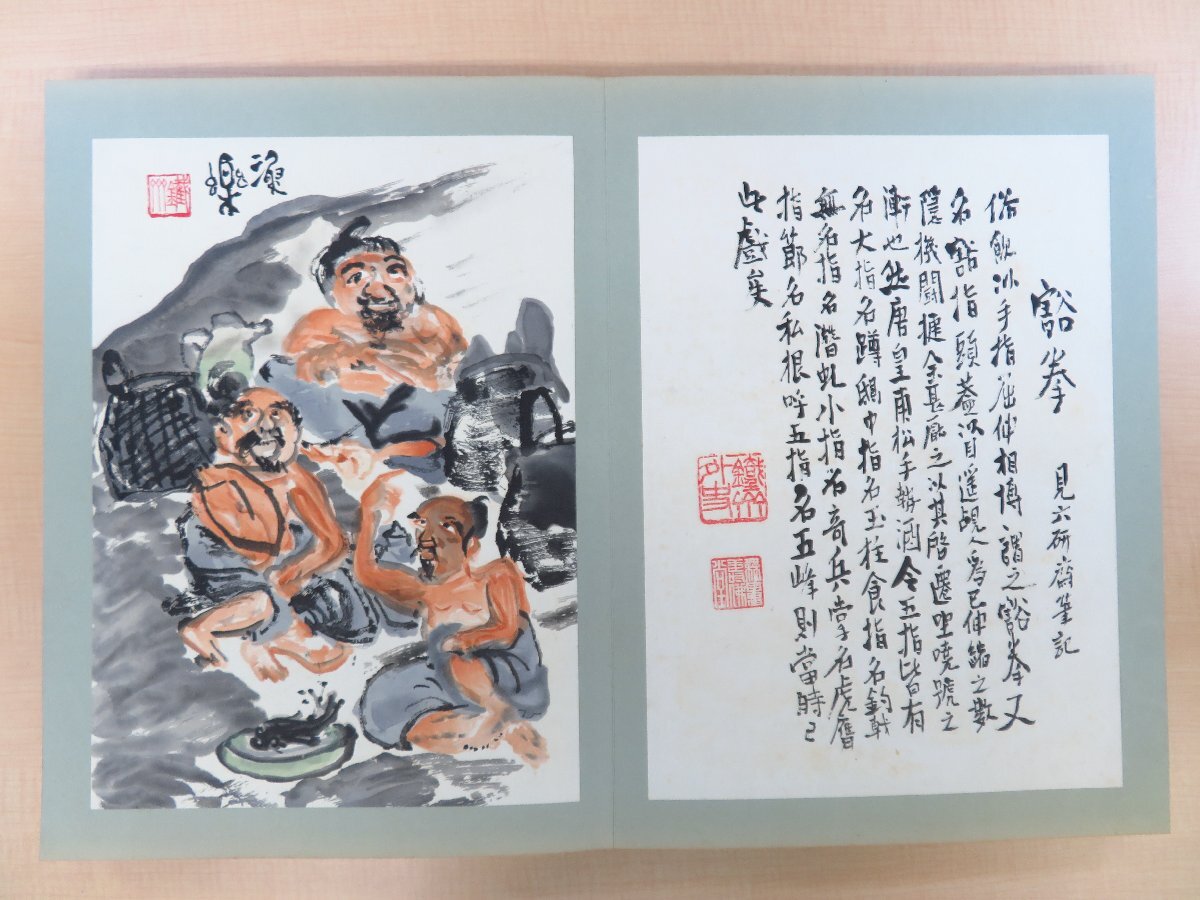 豁拳 見六研齋筆記
俗飲以手指屈伸相博謂之豁拳又
名豁指頭蓋以目遙覘人爲己伸縮之數
隱機鬪捷余甚厭之以其啓遷坐嘵號之
漸也然唐皇甫松手勢酒令五指皆有
名大指名蹲鴟中指名玉柱食指名鈎戟
無名指名潛虬小指名奇兵掌名虎膺
指節名私根呼五指名五峰則當時已
此戲矣
漁樂